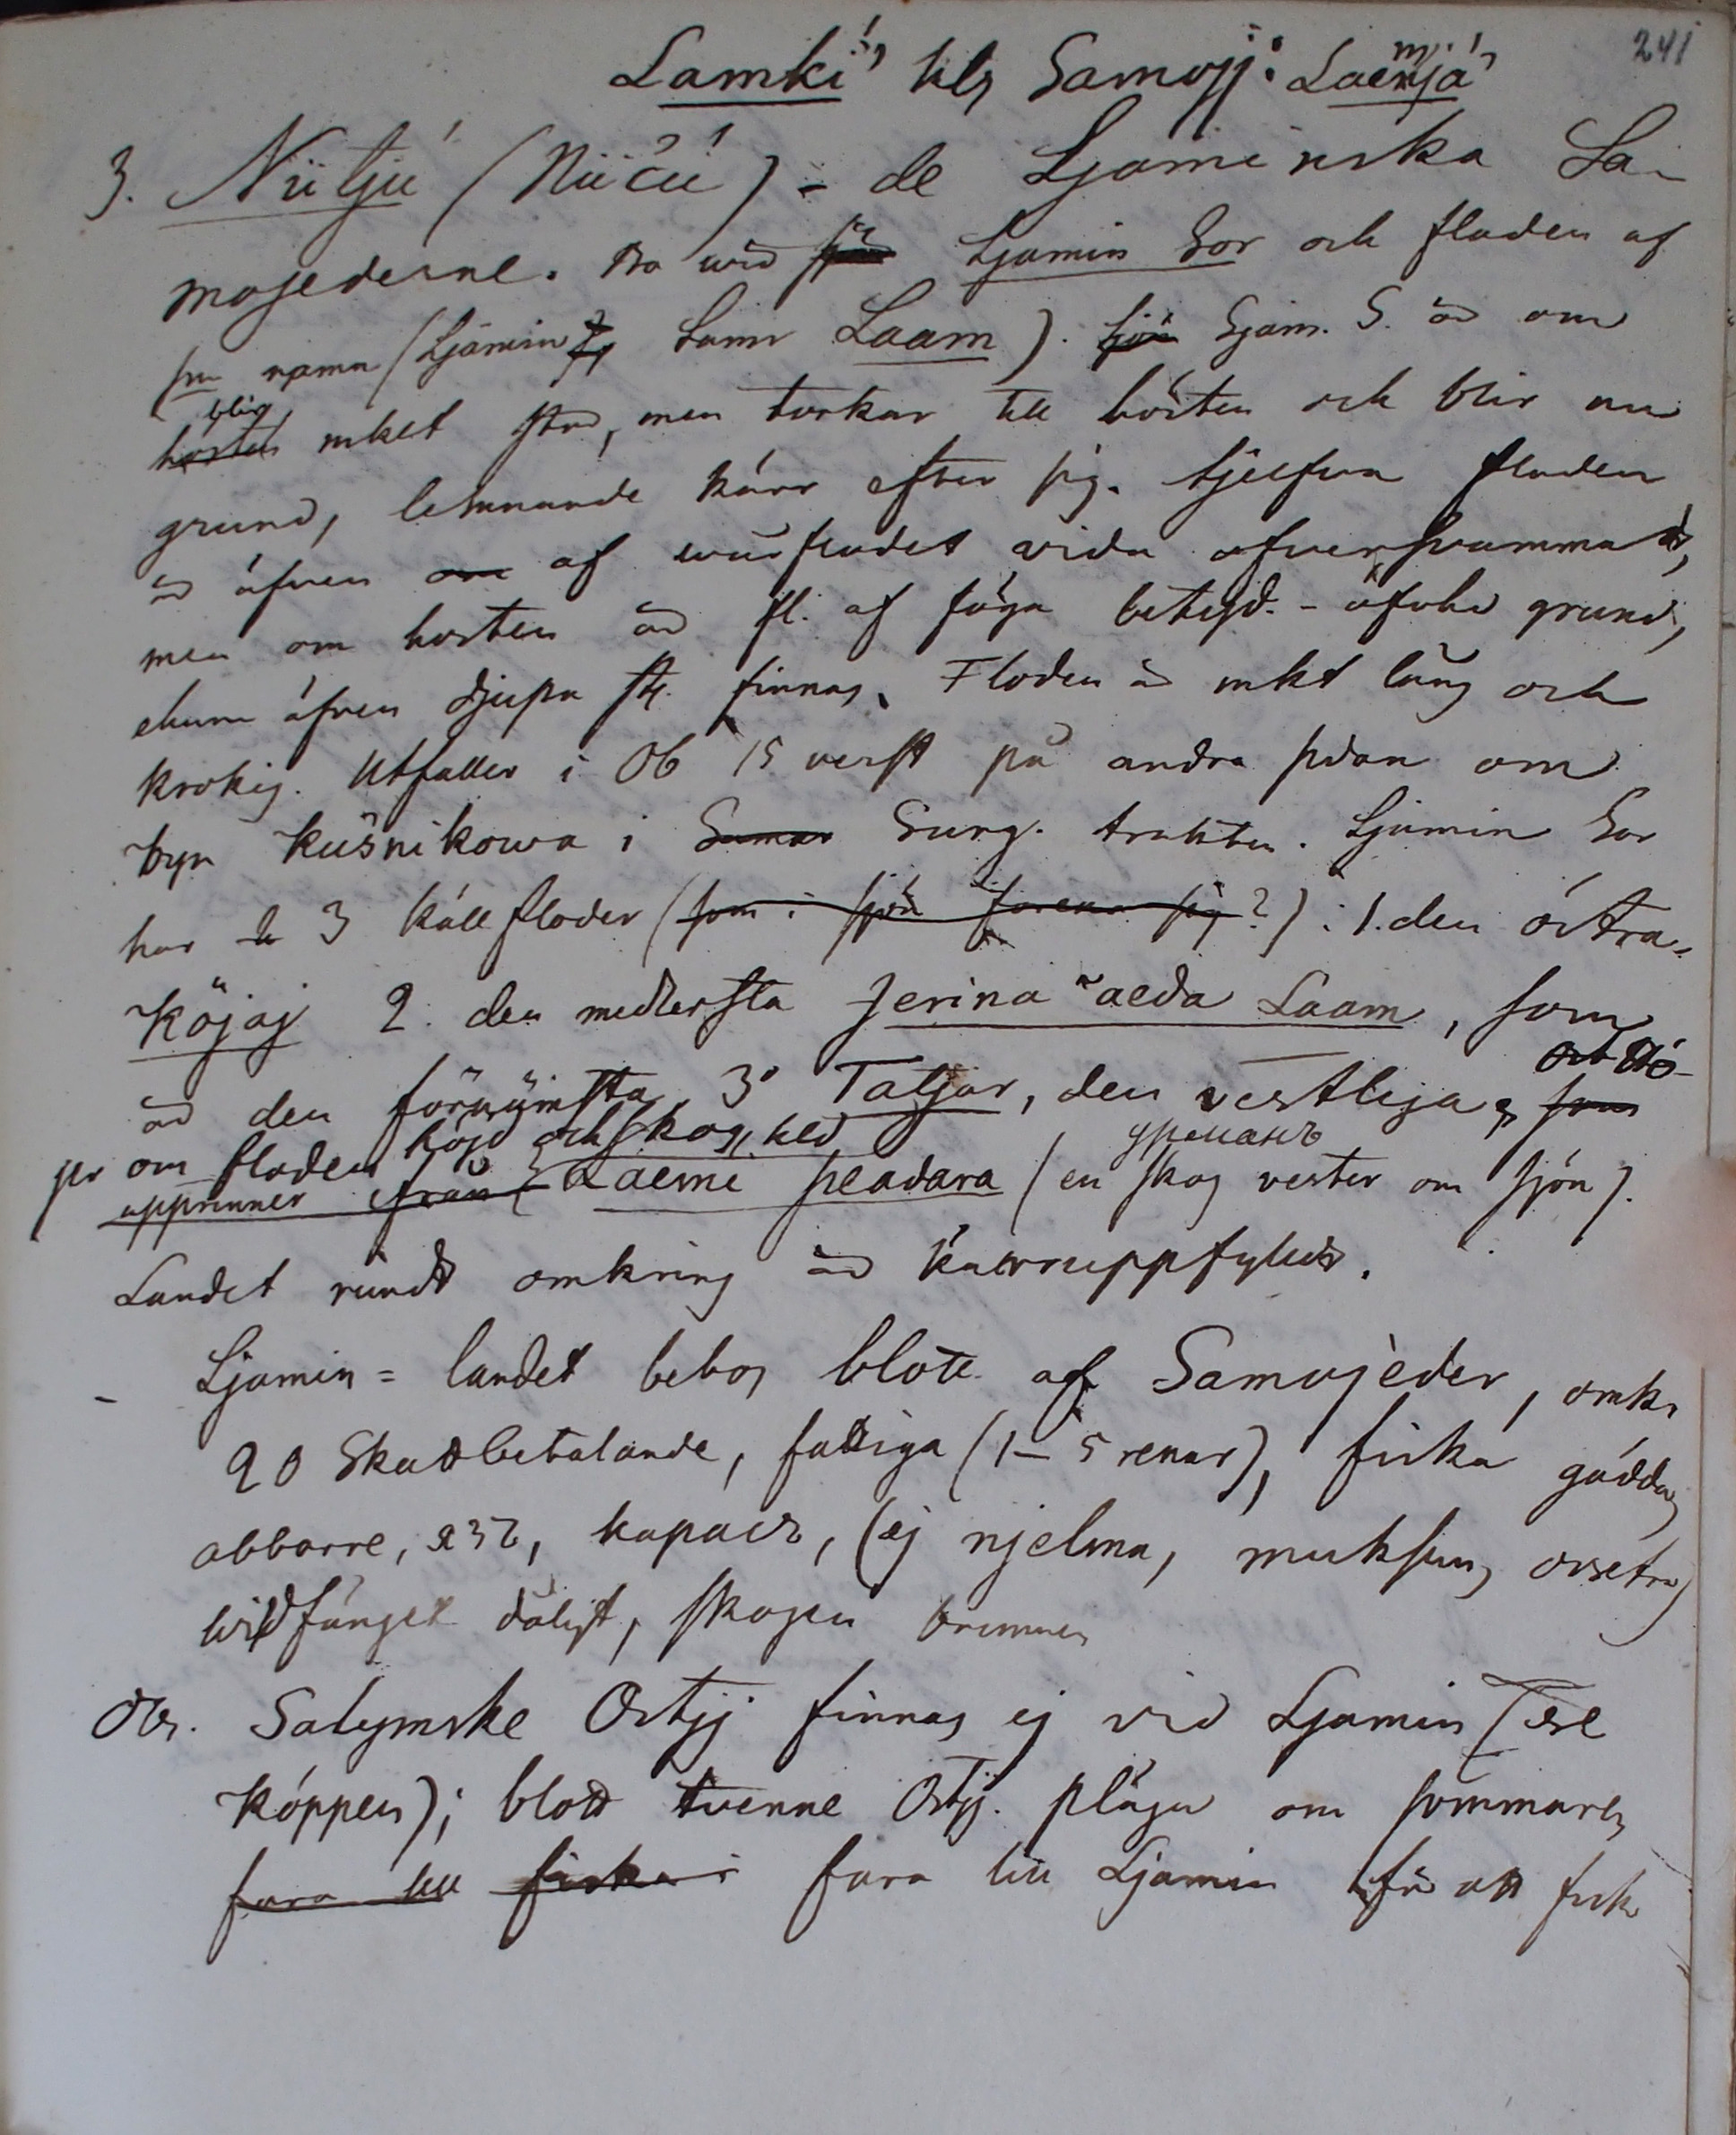 241
Lamki" kls Samojj: Laemja"
3. Niitjú (Niičú) - de Ljaminska Sa-
mojederne. Bo wid Ljamin Sor och floden af
sm namn (Ljämin Sam Laam). Ljam. S. är om
blir
hösten mket stor, men torkar till hösten och blir nu
grund, lemnande kärr efter sig. Sjelfva floden
är äfven om af vårflodet vida öfversvämmad,
men om hösten är fl. af föga betyd. - ofvka grund,
ehuru äfven djupa st. finnas. Floden är mkt lång och
krokig. Utfaller i Ob 15 verst på andra sidan om
byn Kušnikowa i Surg. trakten. Ljamin Sor
har 3 källfloder (som i sjön förena sig?) : 1. den östra
Köjaj 2. den medlersta Jerina aeda Laam, som
är den förnämsta 3° Taljar, den vestliga, som
och stö-
jer om floden höjd och skog, hed урманъ
upprinner från Laemi peadara (en skog vester om sjön).
Landet rundt omkring är kärruppfyldt.
- Ljamin = landet bebos blott af Samojeder, omkr
20 Skattbetalande, fattiga (1-5 renar), fiska gädda,
abborre, язь, карась, (ej njelma, muksun, osetra)
wildfånget dåligt, skogen brunnen
Obs. Salymske Ostjj finnas ej vid Ljamin (se
Köppen); blott tvenne Ostjj. pläga om sommaren
fara till fiska fara till Ljamin för att fiska